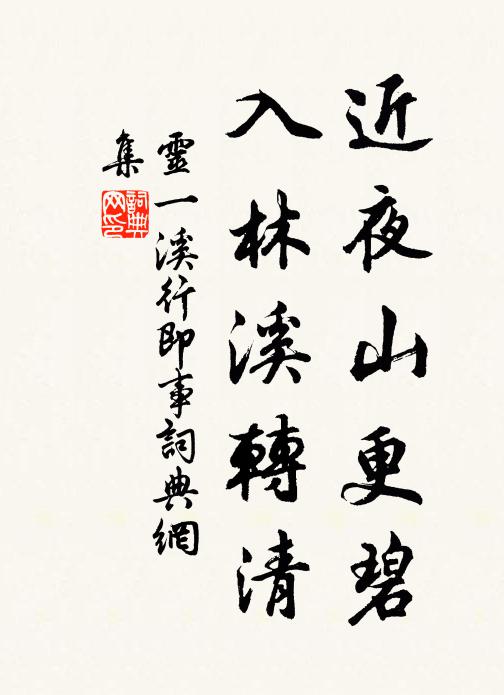 近夜山更碧
入林溪轉清
靈一溪行即事詞典網
集
詞典
网印